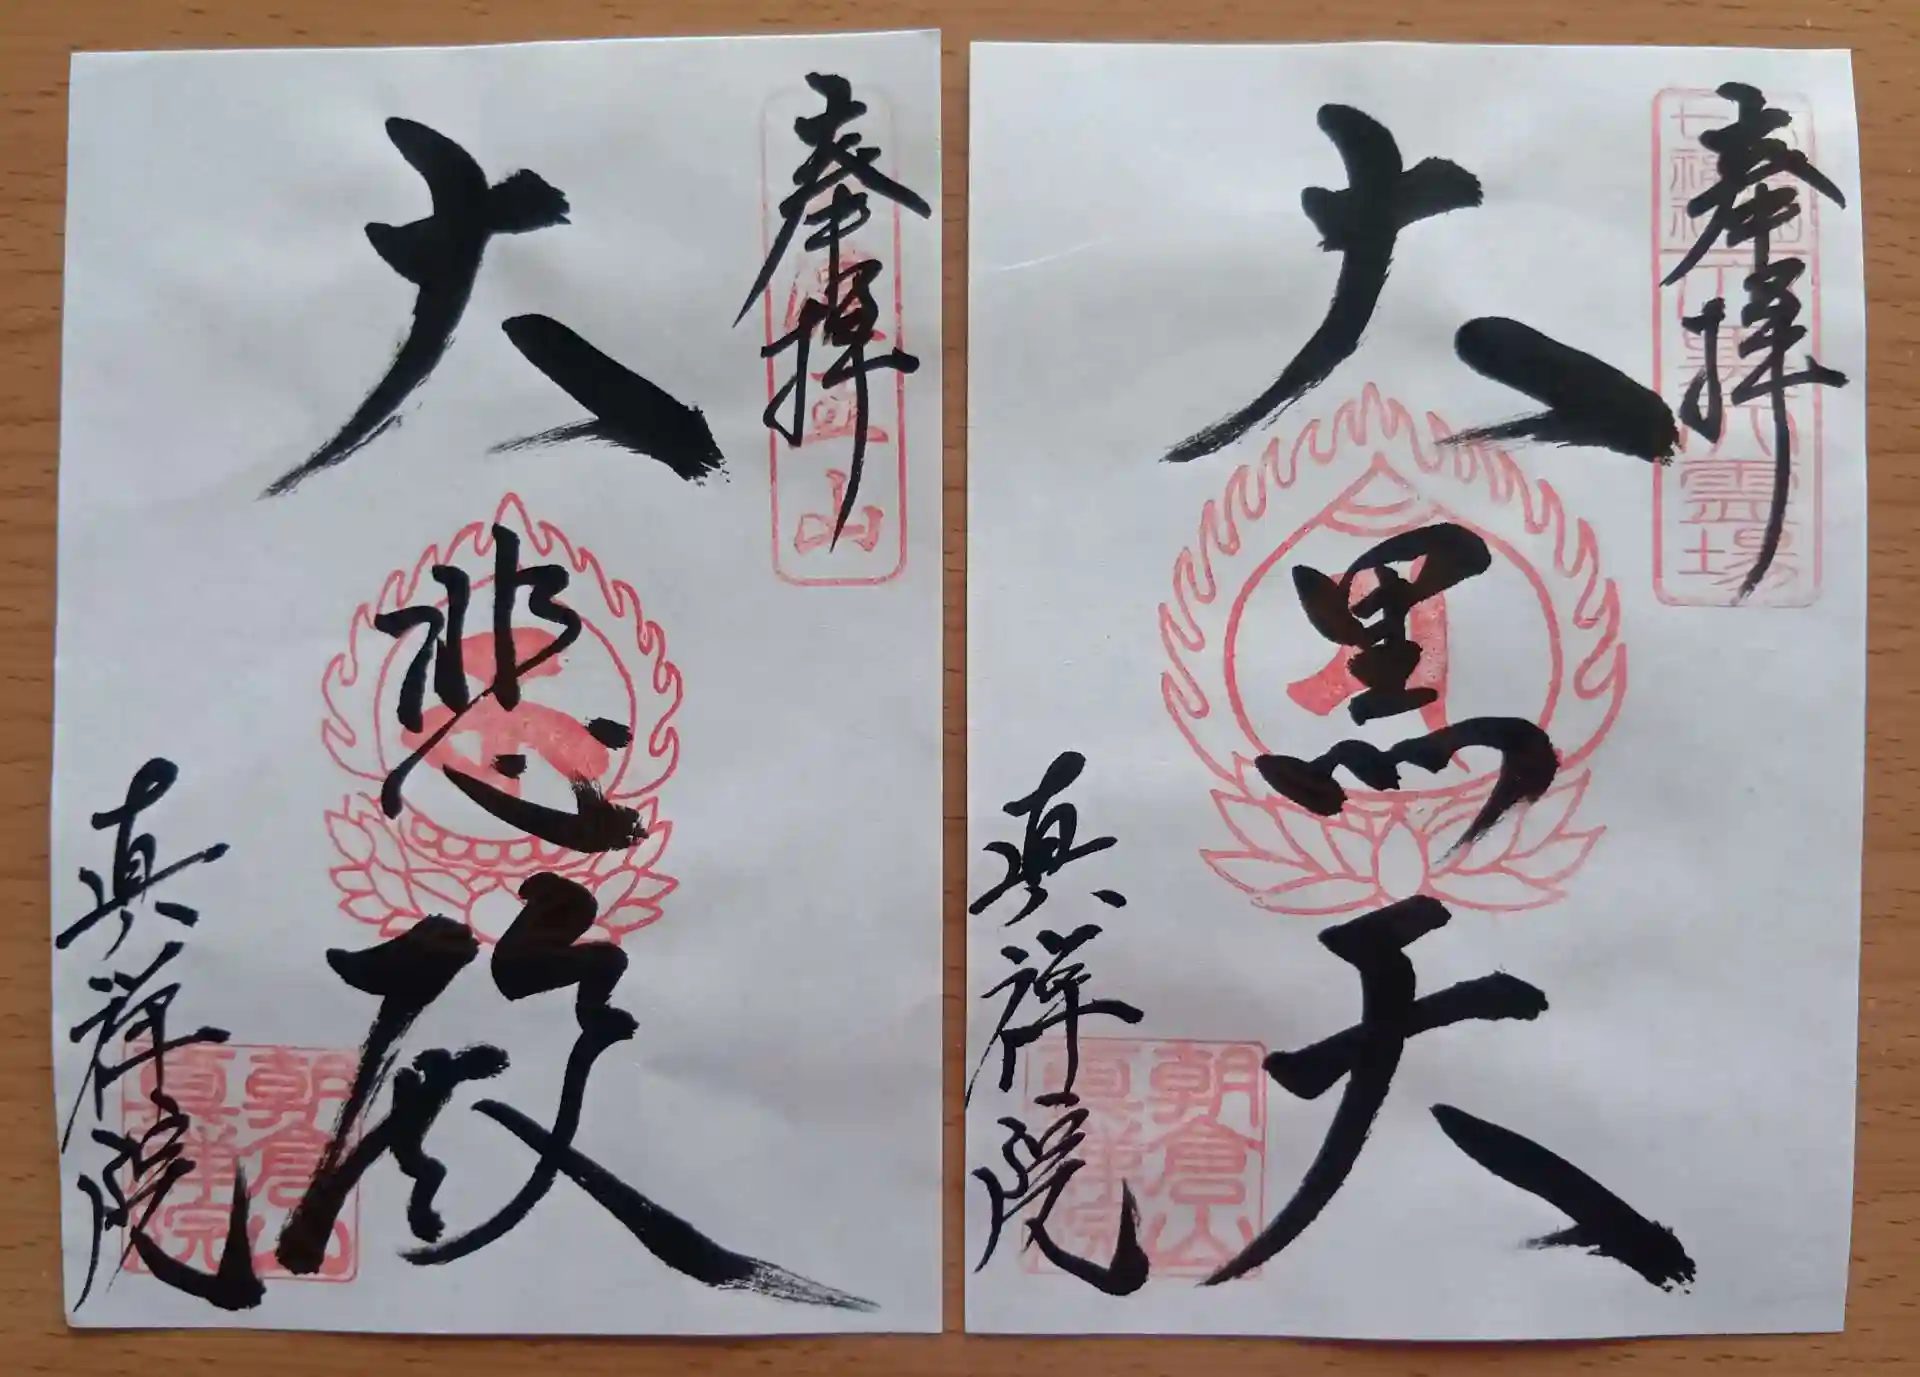 奉拝
大悲殿
真祥院
山
朝倉山
真祥院
奉拝
大黒天
真祥院
七福神
霊場
朝倉山
真祥院